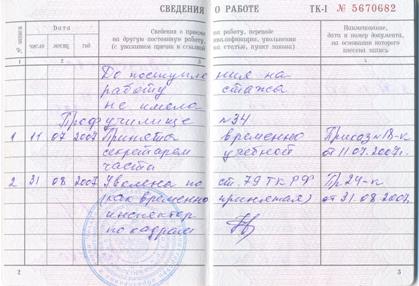 СВЕДЕНИЯ О РАБОТЕ ТК-I № 5670682
№ записи
Дата
число месяц год
Сведения о приеме на работу, переводе
на другую постоянную работу, квалификации, увольнении
(с указанием причин и ссылкой на статью, пункт закона)
Наименование,
дата и номер документа,
на основании которого
внесена запись
1 2 3 4
До поступления на
работу стажа
не имела
Профучилище №34
1 11 07 2007 Принята временно Приказ №18-к
секретарем учебной от 11.07.2007г.
части
2 31 08 2007 Уволена по ст. 79 ТК РФ Пр 24-к
(как временно принятая) от 31.08.2007
инспектор
по кадрам
2 3